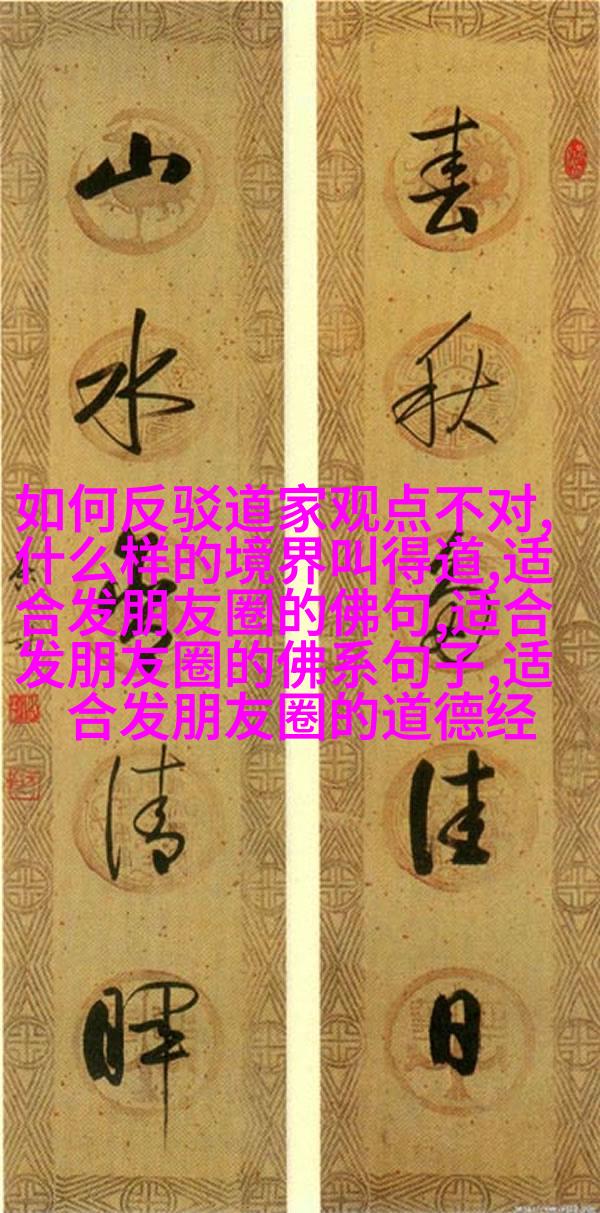 春秋多佳日
山水有清晖
如何反驳道家观点不对,
什么样的境界叫得道,适
合发朋友圈的佛句,适合
发朋友圈的佛系句子,适
合发朋友圈的道德经